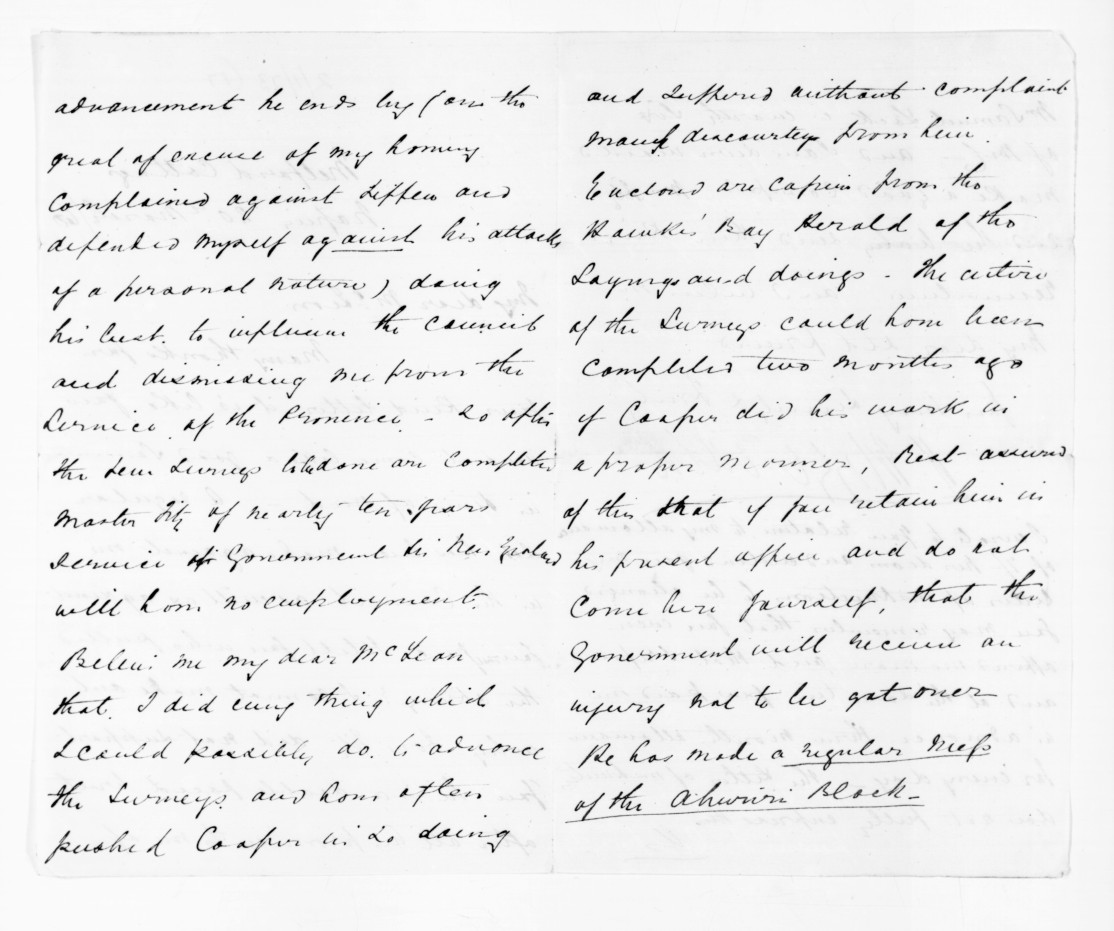 advancement he ends by (on the
great of excuse of my having
complained against Tiffen and
defended myself against his attacks
of a personal nature) doing
his best to influence the Council
and dismissing me from the
Service of the Province - So after
the few Surveys to be done are completed
Master Fitz of nearly ten years
service to Government in New Zealand
will have no employment.
Believe me my dear McLean
that I did every thing which
I could possibly do to advance
the Surveys and have often
pushed Cooper in so doing
and suffered without complaint
much discourtesy from him
Enclosed are copies from the
Hawke's Bay Herald of the
Sayings and doings - The entire
of the Surveys could have been
completed two months ago
if Cooper did his work in
a proper manner, Rest assured
of this that if you retain him in
his present office and do not
come here yourself, that the
Government will receive an
injury not to be got over
He has made a regular mess
of the Ahuriri Block -